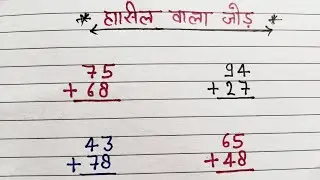 * हासिल वाला जोड़ *
75 94
+ 68 + 27
43 65
+ 78 + 48